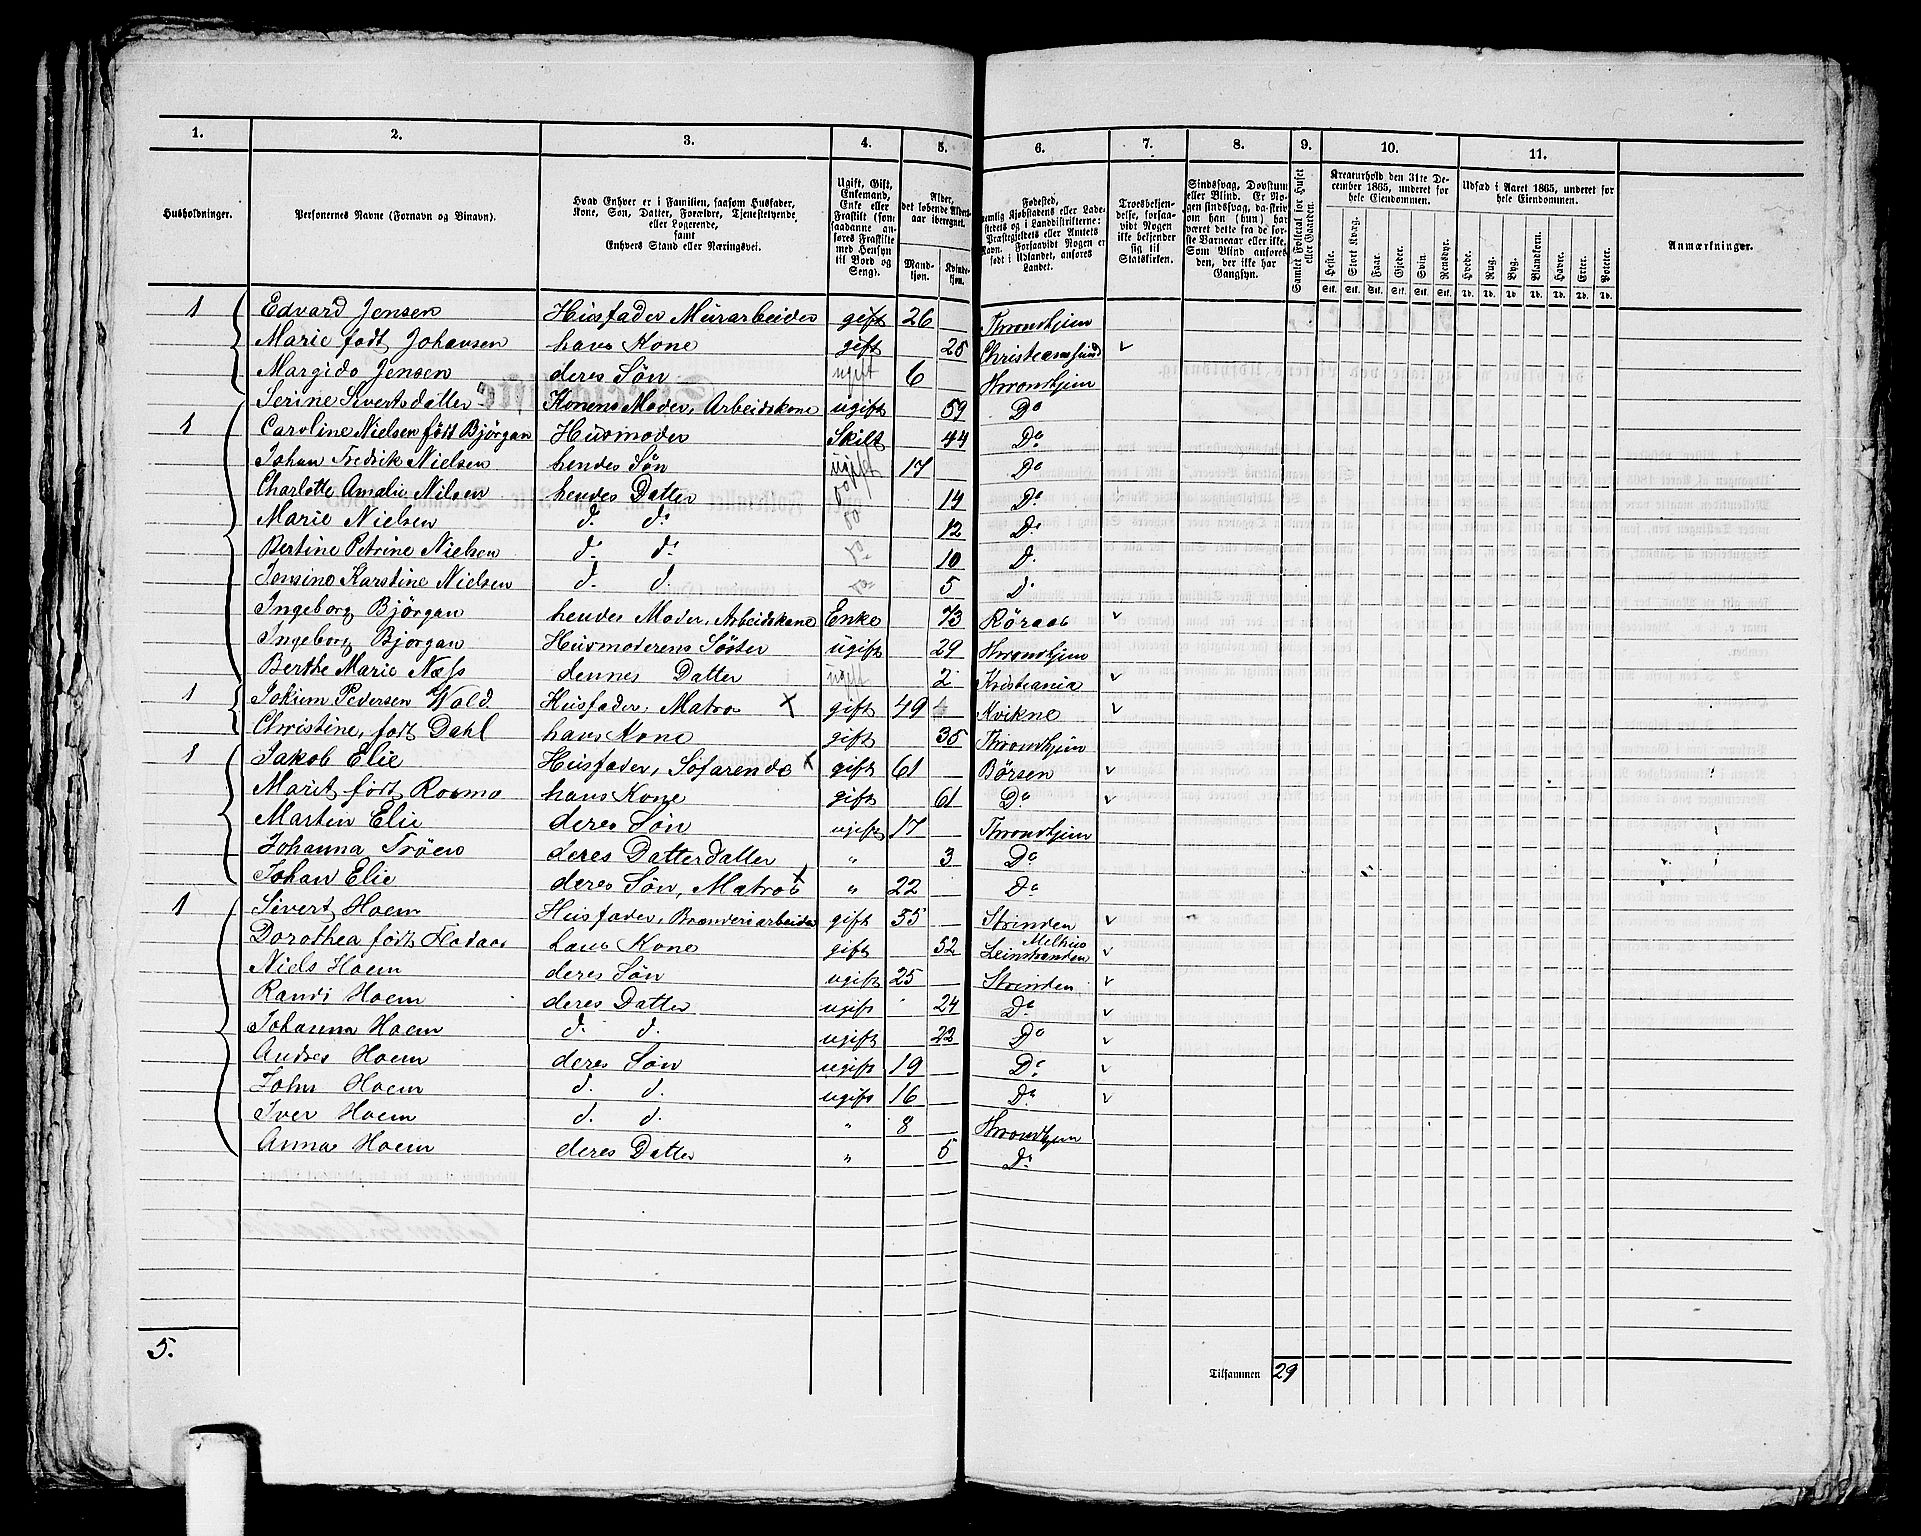 1. 2. 3. 4. 5. 6. 7. 8. 9. 10. 11.
Husholdninger.
Personernes Navne (Fornavn og Binavn).
Hvad Enhver er i Familien, saasom Husfader,
Kone, Søn, Datter, Forældre, Tjenestetyende
eller Logerende,
samt
Enhvers Stand eller Næringsvei.
Ugift, Gift,
Enkemand,
Enke eller
Fraskilt (som
saadanne an-
føres Fraskilte
med Hensyn
til Bord og
Seng).
Alder,
det løbende Alders-
aar iberegnet.
Mand-
kjøn.
Kvinde-
kjøn.
Fødested,
nemlig Kjøbstadens eller Lade-
stedets og i Landdistrikterne:
Præstegjeldets eller Amtets
Navn. Forsaavidt Nogen er
født i Udlandet, anføres
Landet.
Troesbekjen-
delse, forsaa-
vidt Nogen
ikke bekjender
sig til
Statskirken.
Sindssvag, Døvstum
eller Blind. Er No-
gen sindssvag, da hvor-
vidt han (hun) har
været dette fra de før-
ste Barneaar eller ikke.
Som Blind anføres
den, der ikke har
Gangsyn.
Samlet Folketal for Huset
eller Gaarden.
Kreaturhold den 31te De-
cember 1865, underet for
hele Eiendommen.
Heste. Stort Kvæg. Faar. Gjeder. Svin. Rensdyr.
Stk. Stk. Stk. Stk. Stk. Stk.
Udsæd i Aaret 1865, underet for
hele Eiendommen.
Hvede. Rug. Byg. Blandkorn. Havre. Erter. Poteter.
Td. Td. Td. Td. Td. Td. Td.
Anmærkninger.
1 Edvard Jensen Husfader Murarbeider gift 26 Throndhjem
Marie født Johansen hans Kone gift 25 Christianssund v
Margido Jensen deres Søn ugift 6 Throndhjem
Serine Sivertsdatter Konens Moder, Arbeidskone ugift 59 Do
1 Caroline Nielsen født Bjørgan Husmoder Skilt 44 Do
Johan Fredrik Nielsen hendes Søn ugift 17 Do
Charlotte Amalie Nilsen hendes Datter do 14 Do
Marie Nielsen d. do do 12 Do
Bertine Petrine Nielsen d. do do 10 D.
Jensine Karstine Nielsen d. d. do 5 d.
Ingeborg Bjørgan hendes Moder, Arbeidskone Enke 73 Røraas v
Ingeborg Bjørgan Husmoderens Søster ugift 29 Throndhjem
Berthe Marie Næss dennes Datter ugift 2 Kristiania v
1 Jokum Pedersen Wold Husfader, Matros X gift 49 Kvikne v
Christine, født Dahl hans Kone gift 35 Throndhjem
1 Jakob Elie Husfader, Søfarende X gift 61 Børsen v
Marit født Rosmo hans Kone gift 61 Do v
Martin Elie deres Søn ugift 17 Throndhjem
Johanna Trøen deres Datterdatter " 3 Do
Johan Elie deres Søn, Matros X " 22 Do
1 Sivert Hoem Husfader, Brænderiarbeider gift 55 Strinden v
Dorothea født Flodaas hans Kone gift 52 Melhus Leinstranden v
Niels Hoem deres Søn ugift 25 Strinden v
Randi Hoem deres Datter ugift 24 Do v
Johanna Hoem d. d. ugift 22 Do v
Andres Hoem deres Søn ugift 19 Do v
John Hoem d. d. ugift 16 Do v
Iver Hoem d. d. " 8 Throndhjem
Anna Hoem deres Datter " 5 Do
5.
Tilsammen 29